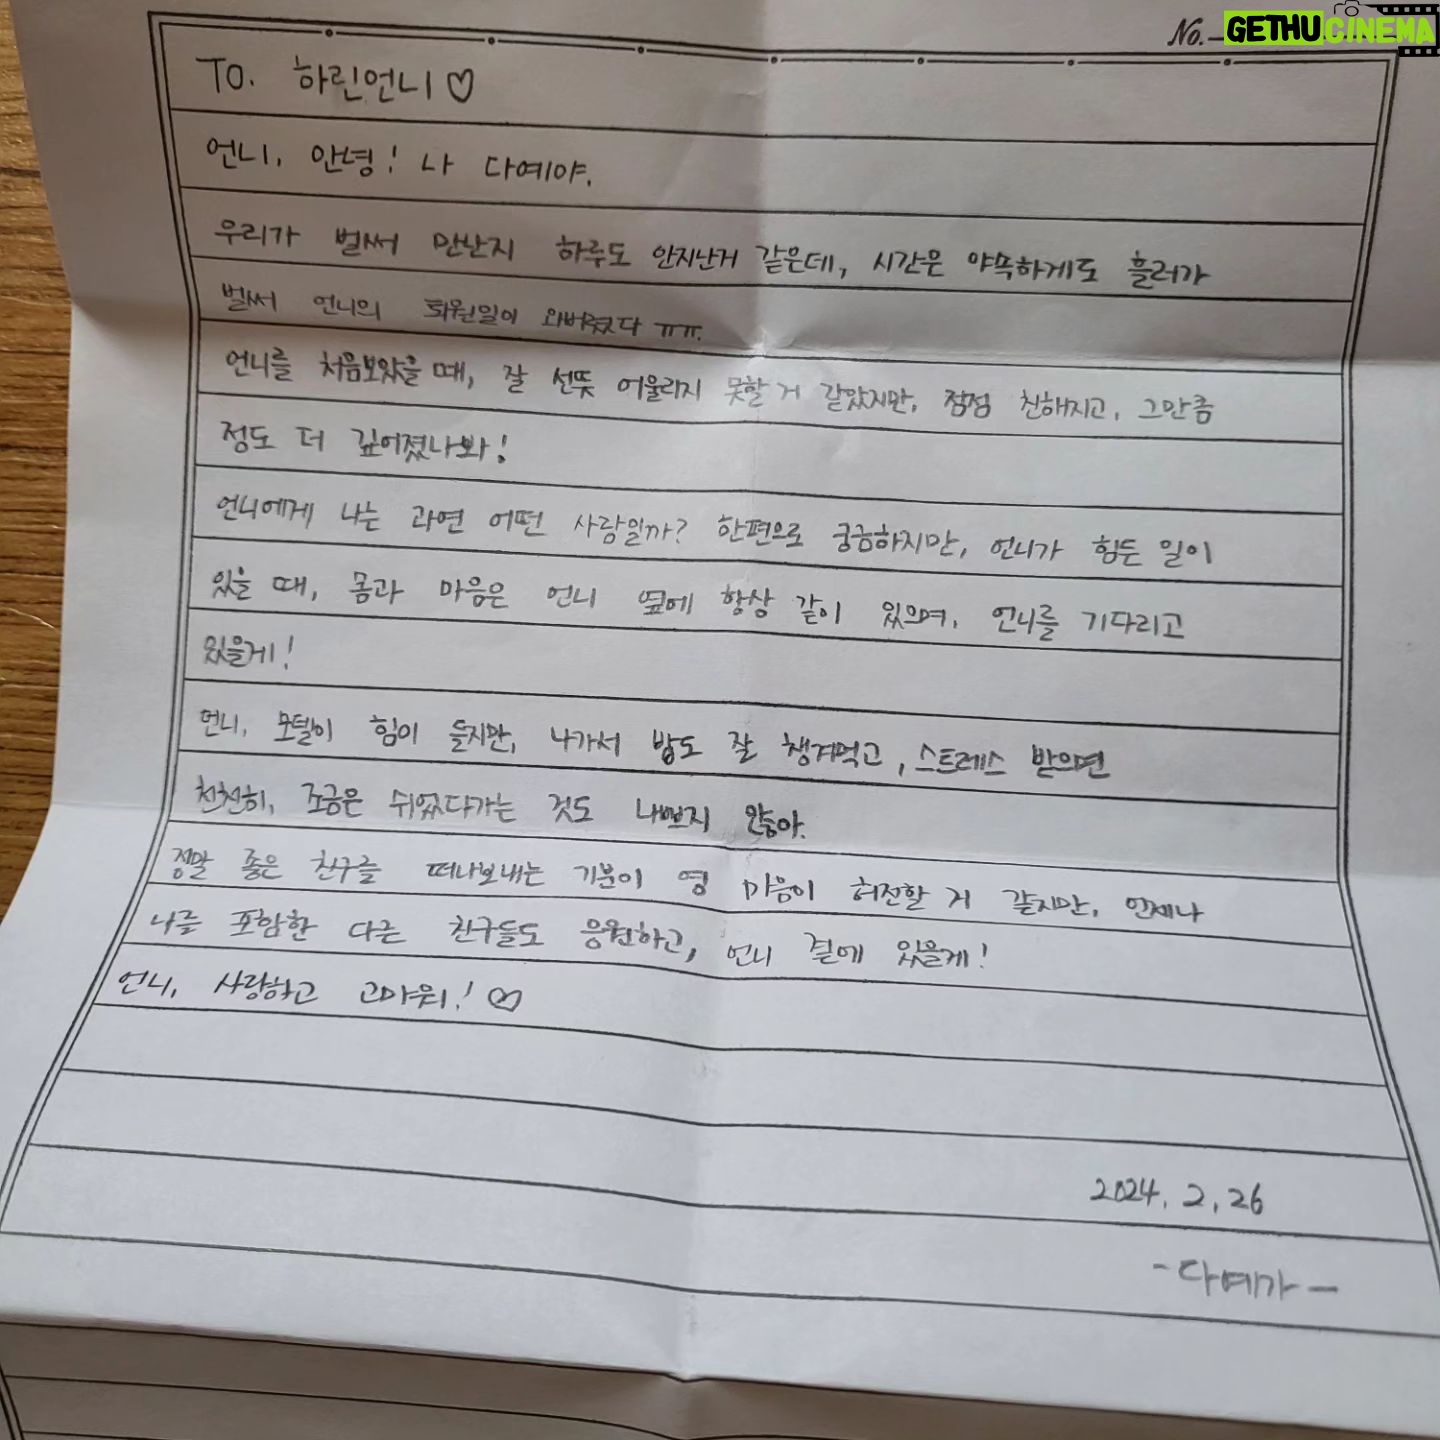 No. GETHUCINEMA
TO. 하린언니♡
언니, 안녕! 나 다예야.
우리가 벌써 만난지 하루도 안지난거 같은데, 시간은 야속하게도 흘러가
벌써 언니의 퇴원일이 와버렸다 ㅠㅠ.
언니를 처음보았을 때, 잘 선뜻 어울리지 못할 거 같았지만, 점점 친해지고, 그만큼
정도 더 깊어졌나봐!
언니에게 나는 과연 어떤 사람일까? 한편으로 궁금하지만, 언니가 힘든 일이
있을 때, 몸과 마음은 언니 옆에 항상 같이 있으며, 언니를 기다리고
있을게!
언니, 모델이 힘이 들지만, 나가서 밥도 잘 챙겨먹고, 스트레스 받으면
천천히, 조금은 쉬었다가는 것도 나쁘지 않아.
정말 좋은 친구를 떠나보내는 기분이 영 마음이 허전할 거 같지만, 언제나
나를 포함한 다른 친구들도 응원하고, 언니 곁에 있을게!
언니, 사랑하고 고마워! ♡
2024. 2. 26
-다예가-